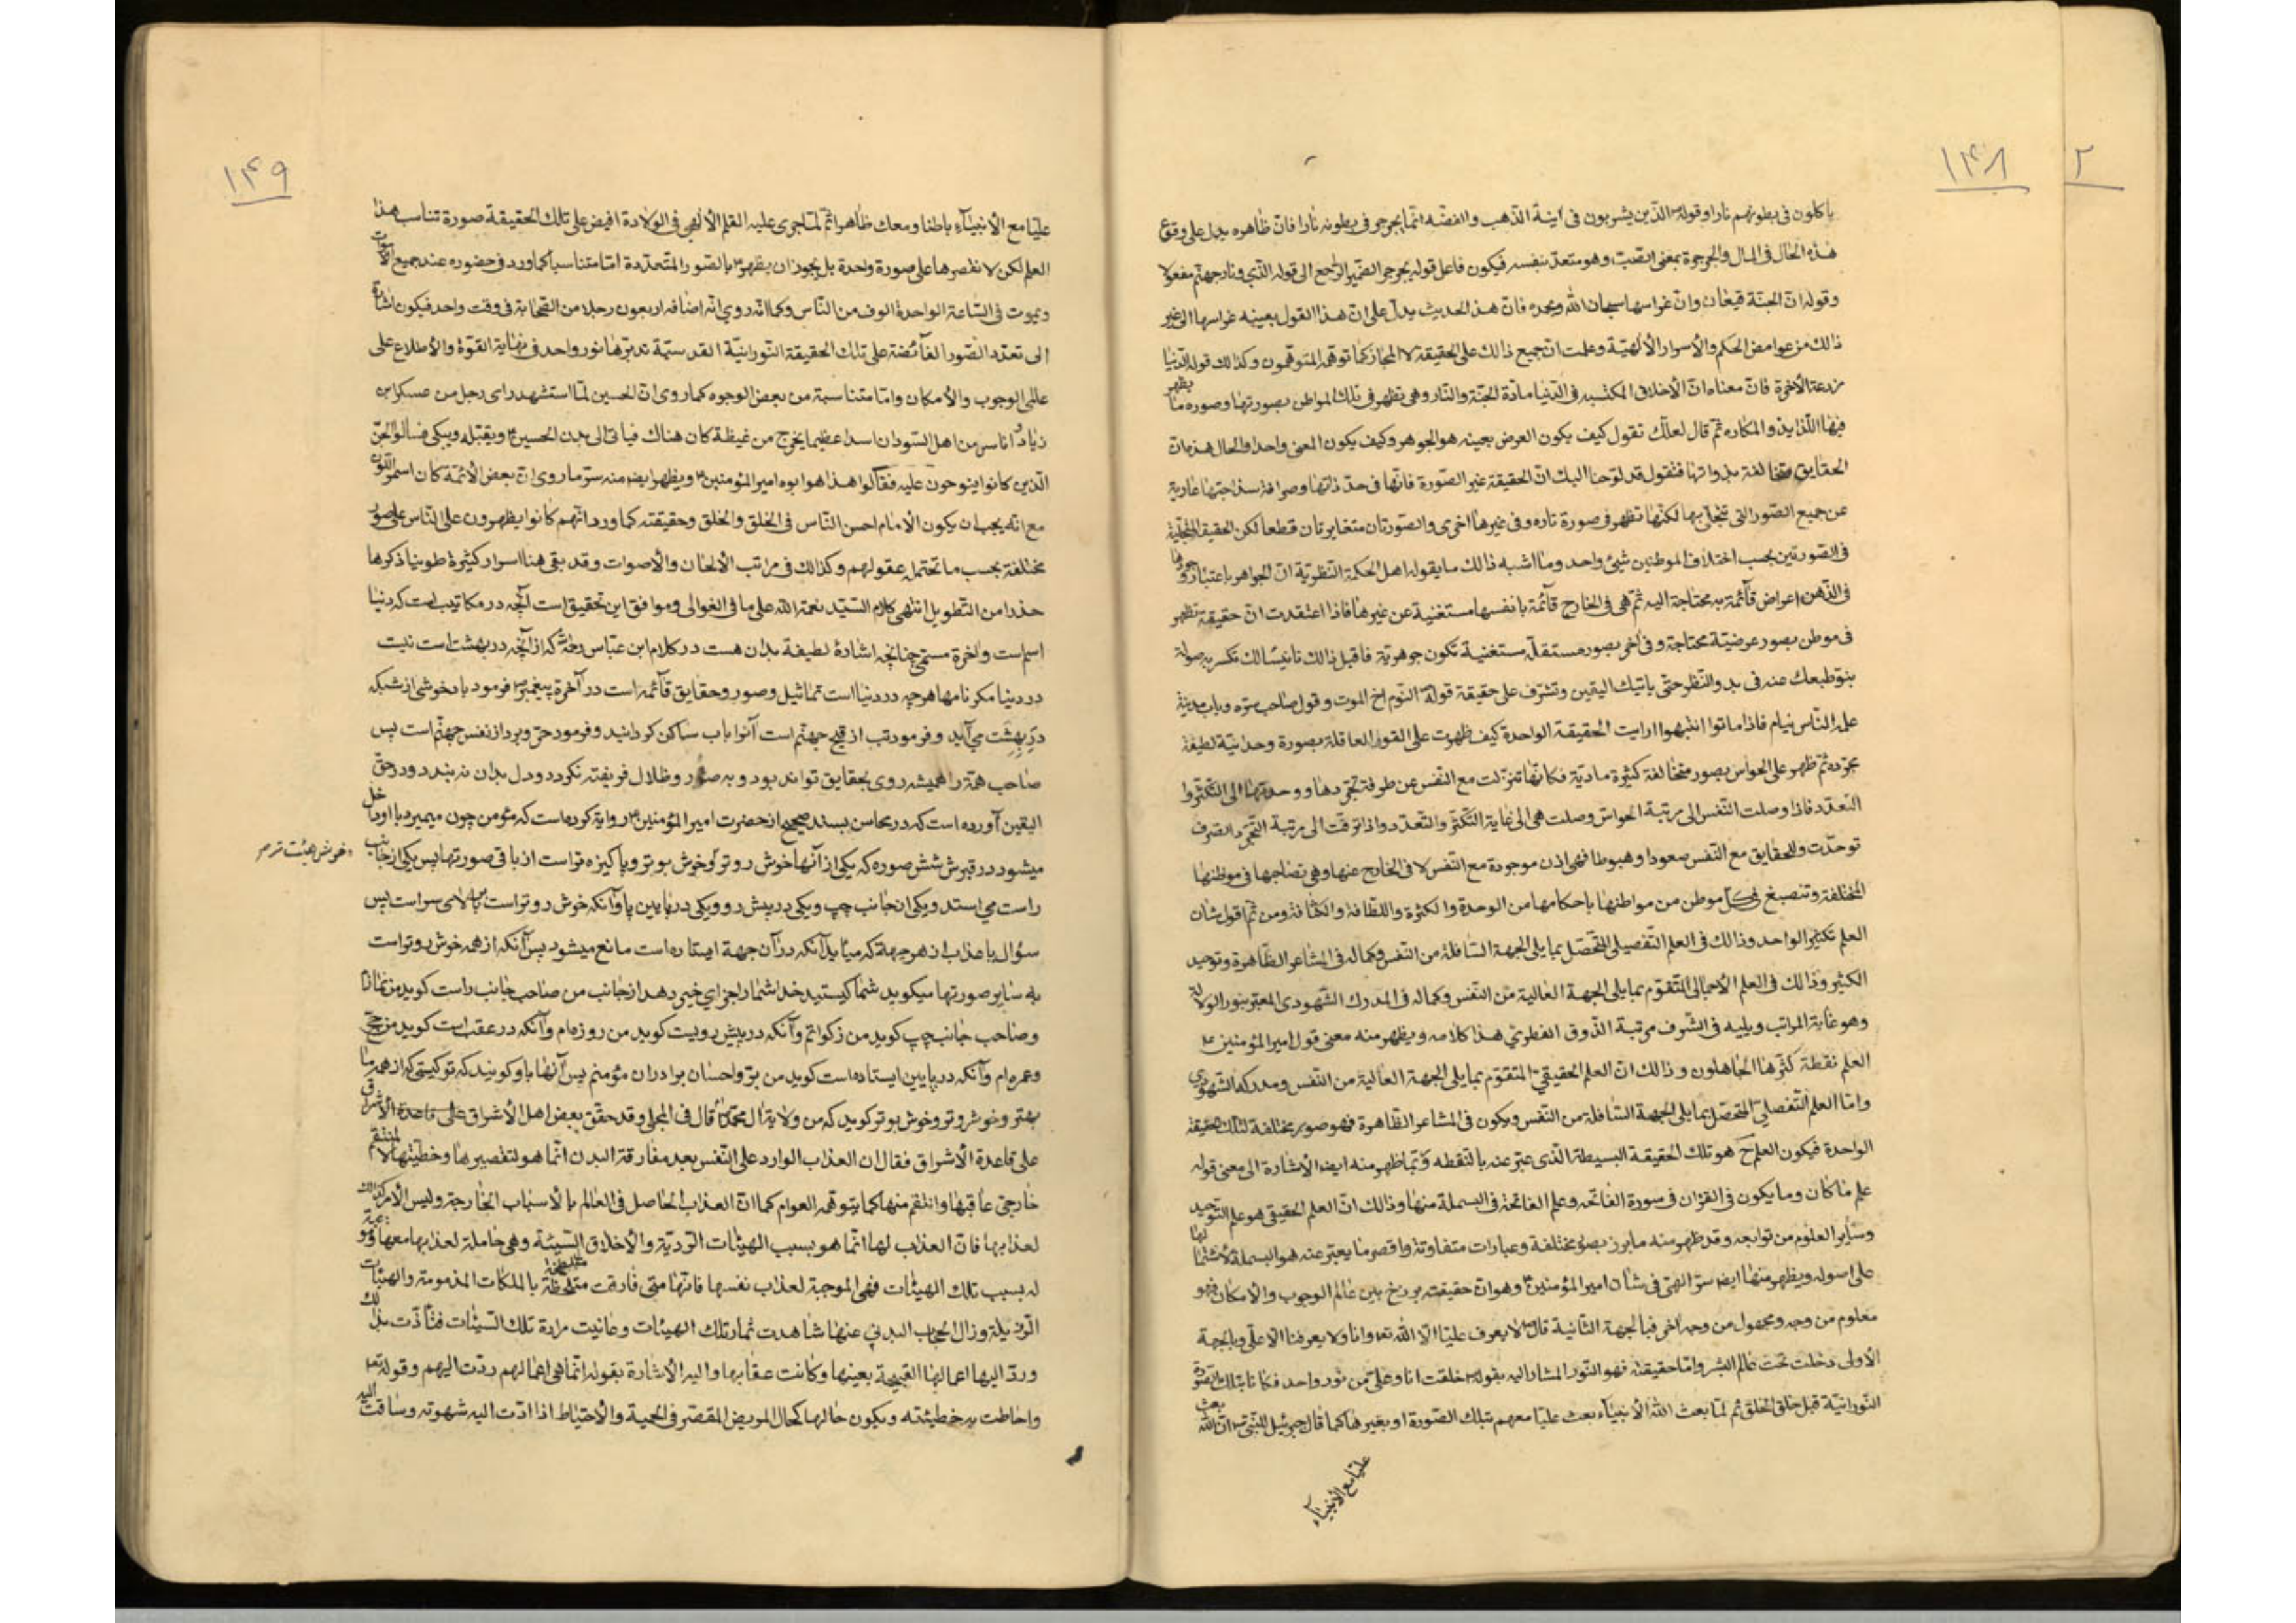 ٢
١٤٨
ياكلون فى بطونهم نارا وقوله ص الذين يشربون فى آنية الذهب والفضه انما يجرجر فى بطونه نارا فان ظاهره يدل على وقوع
هذه الحال فى المال والجرجرة بمعنى الصب وهو متعد بنفسه فيكون فاعل قوله يجرجر الضمير الراجع الى قوله الذى ونار جهنم مفعولا
وقوله ان الجنة قيعان وان غراسها سبحان الله وبحمده فان هذا الحديث يدل على ان هذا القول بعينه غراسها الى غير
ذالك من غوامض الحكم والأسرار الألهية وعلمت ان جميع ذالك على الحقيقة لا المجاز كما توهمه المتوهمون وكذالك قوله الدنيا
مزرعة الأخرة فان معناه ان الأخلاق المكتسبه فى الدنيا مادة الجنة والنار وهى تظهر فى تلك المواطن بصورتها وصوره ما يظهر
فيها اللذايذ والمكاره ثم قال لعلك تقول كيف يكون العرض بعينه هو الجوهر وكيف يكون المعنى واحدا والحال هذه ان
الحقايق متخالفة بذواتها فنقول قد لوحنا اليك ان الحقيقة غير الصورة فانها فى حد ذاتها وصرافة سذاجتها عارية
عن جميع الصور التى تتجلى بها لكنها تظهر فى صورة تاره وفى غيرها اخرى والصورتان متغايرتان قطعا لكن الحقيقة المتجلية
فى الصورتين بحسب اختلاف الموطنين شيئ واحد وما اشبه ذالك ما يقوله اهل الحكمة النظرية ان الجواهر باعتبار وجودها
فى الذهن اعراض قائمة به محتاجة اليه ثم هى فى الخارج قائمة بانفسها مستغنية عن غيرها فاذا اعتقدت ان حقيقة تظهر
فى موطن بصور عرضية محتاجة وفى اخر بصور مستقلة مستغنية تكون جوهرية فاقبل ذالك تانيسا لك تكسر به صولة
نبو طبعك عنه فى بدو النظر حتى ياتيك اليقين وتشرف على حقيقة قوله ص النوم اخ الموت وقول صاحب سره وباب مدينة
علمه الناس نيام فاذا ماتوا انتبهوا ارايت الحقيقة الواحدة كيف ظهرت على القوة العاقلة بصورة وحدانية لطيفة
مجرده ثم ظهر على الحواس بصور متخالفة كثيرة مادية فكانها تنزلت مع النفس عن طرفة تجردها ووحدتها الى التكثر وا
التعدد فاذا وصلت النفس الى مرتبة الحواس وصلت هى الى غاية التكثر والتعدد واذا ترقت الى مرتبة التجرد الصرف
توحدت وللحقايق مع النفس صعودا وهبوطا فهى اذن موجودة مع النفس لا فى الخارج عنها وهى تصاحبها فى موطنها
المختلفة وتنصبغ فى كل موطن من مواطنها باحكامها من الوحدة والكثرة واللطافة والكثافة ومن ثم اقول شان
العلم تكثير الواحد وذالك فى العلم التفصيلى المتحصل بما يلى الجهة السافلة من النفس وكماله فى المشاعر الظاهرة وتوحيد
الكثير وذالك فى العلم الأجمالى المتقوم بما يلى الجهة العالية من النفس وكماله فى المدرك الشهودى المعتبر بنور الولاية
وهو غاية المراتب ويليه فى الشرف مرتبة الذوق الفطرى هذا كلامه ويظهر منه معنى قول امير المؤمنين ع
العلم نقطة كثرها الجاهلون وذالك ان العلم الحقيقى المتقوم بما يلى الجهة العالية من النفس ومدركه الشهودى
واما العلم التفصلى المتحصل بما يلى الجهة السافلة من النفس ويكون فى المشاعر الظاهرة فهو صور مختلفة لتلك الحقيقة
الواحدة فيكون العلم ح هو تلك الحقيقة البسيطة الذى عبر عنه بالنقطه ومما ظهر منه ايضا الأشارة الى معنى قوله
علم ما كان وما يكون فى القران فى سورة الفاتحه وعلم الفاتحة فى البسملة منها وذالك ان العلم الحقيقى هو علم التوحيد
وساير العلوم من توابعه وقد ظهر منه ما برز بصور مختلفة وعبارات متفاوتة واقصر ما يعبر عنه هو البسملة لأشتمالها
على اصوله ويظهر منها ايضا سر الهى فى شان امير المؤمنين ع وهو ان حقيقته برزخ بين عالم الوجوب والأمكان فهو
معلوم من وجه ومجهول من وجه اخر فبالجهة الثانية قال ص لا يعرف عليا الا الله تعالى وانا ولا يعرفنا الا على وبالجهة
الأولى دخلت تحت عالم البشر واما حقيقته فهو النور المشار اليه بقوله ص خلقت انا وعلى من نور واحد فكانا بتلك الصورة
النورانية قبل خلق الخلق ثم لما بعث الله الأنبياء بعث عليا معهم بتلك الصورة او بغيرها كما قال جبرئيل للنبى ص ان الله بعث
عليا مع الأنبياء
١٤٩
عليا مع الأنبياء باطنا ومعك ظاهرا ثم لما جرى عليه القلم الألهى فى الولادة افيض على تلك الحقيقة صورة تناسب هذا
العلم لكن لا نقصرها على صورة واحدة بل يجوز ان يظهر ع بالصور المتعددة اما متناسبا كما ورد فى حضوره عند جميع الأموات
ويموت فى الساعة الواحدة الوف من الناس وكما انه روى انه اضافه اربعون رجلا من الصحابة فى وقت واحد فيكون اشارة
الى تعدد الصور الفائضة على تلك الحقيقة النورانية القدسية تدبرها نور واحد فى نهاية القوة والأطلاع على
عالمى الوجوب والأمكان واما متناسبة من بعض الوجوه كما روى ان الحسين لما استشهد راى رجل من عسكر ابن
زياد اناس من اهل السودان اسدا عظيما يخرج من غيظة كان هناك فياتى الى بدن الحسين ع ويقبله ويبكى فسالوا الجن
الذين كانوا ينوحون عليه فقالوا هذا هو ابوه امير المؤمنين ع ويظهر ايضا منه سر ما روى ان بعض الأئمة كان اسمر اللون
مع انه يجب ان يكون الأمام احسن الناس فى الخلق والخلق وحقيقته كما ورد انهم كانوا يظهرون على الناس على صور
مختلفة بحسب ما تحتمله عقولهم وكذالك فى مراتب الألحان والأصوات وقد بقى هنا اسرار كثيرة طوينا ذكرها
حذرا من التطويل انتهى كلام السيد نعمة الله على ما فى الغوالى وموافق اين تحقيق است آنچه در مكاتيب است كه دنيا
اسم است واخرة مسمى چنانچه اشارۀ لطيفة بدان هست در كلام ابن عباس رحمه الله كه از آنچه در بهشت است نيست
در دنيا مكر نامها هرچه در دنيا است تماثيل وصور وحقايق قائمه است در آخرة پيغمبر ص فرمود باد خوشى از شبكه
در بهشت مي آيد وفرمود تب از قيح جهنم است آنرا باب ساكن كردانيد وفرمود حر وبرد از نفس جهنم است پس
صاحب همة را هميشه روى بحقايق تواند بود و به صور وظلال فريفته نكردد و دل بدان نه بندد ودر حق
اليقين آورده است كه در محاسن بسند صحيح از حضرت امير المؤمنين ع رواية كرده است كه مؤمن چون ميميرد با او داخل
ميشود در قبرش شش صوره كه يكى از آنها خوش روتر وخوش بوتر وپاكيزه تر است از باقى صورتها پس يكى از جانب
خوش هيئت تر م
راست مي استد ويكى از جانب چپ ويكى در پيش رو ويكى در پايين پا وآنكه خوش روتر است بر بالاى سر است پس
سؤال يا عذاب از هر جهة كه ميآيد آنكه در آن جهة ايستاده است مانع ميشود پس آنكه از همه خوش روتر است
به ساير صورتها ميكويد شما كيستيد خدا شما را جزاي خير دهد از جانب من صاحب جانب راست كويد من نمازم
وصاحب جانب چپ كويد من زكواتم وآنكه در پيش رويست كويد من روزه ام وآنكه در عقب است كويد من حج
وعمره ام وآنكه در پايين ايستاده است كويد من بر واحسان برادران مؤمنم پس آنها باو كويند كه تو كيستى كه از همه ما
بهتر وخوش روتر وخوش بوتر كويد كه من ولاية ال محمدم قال فى المجلى وقد حقق بعض اهل الأشراق على قاعدة الأشراق
على قاعدة الأشراق فقال ان العذاب الوارد على النفس بعد مفارقة البدن انما هو لتقصيرها وخطيئتها لا لمنتقم
خارجى عاقبها وانتقم منها كما يتوهمه العوام كما ان العذاب الحاصل فى العالم بالأسباب الخارجة وليس الأمر كذالك
لعذابها فان العذاب لها انما هو بسبب الهيئات الردية والأخلاق السيئة وهى حاملة لعذابها معها
له بسبب تلك الهيئات فهى الموجبة لعذاب نفسها فانها متى فارقت متلطخة بالملكات المذمومة والهيئات
الرذيلة وزال الحجاب البدنى عنها شاهدت ثمار تلك الهيئات وعانيت مرارة تلك السيئات فتاذت بذالك
ورد اليها اعمالها القبيحة بعينها وكانت عقابها واليه الأشارة بقوله انما هى اعمالهم ردت اليهم وقوله تعالى
واحاطت به خطيئته ويكون حالها كحال المريض المقصر فى الحمية والأحتياط اذا ادت اليه شهوته وساقت اليه